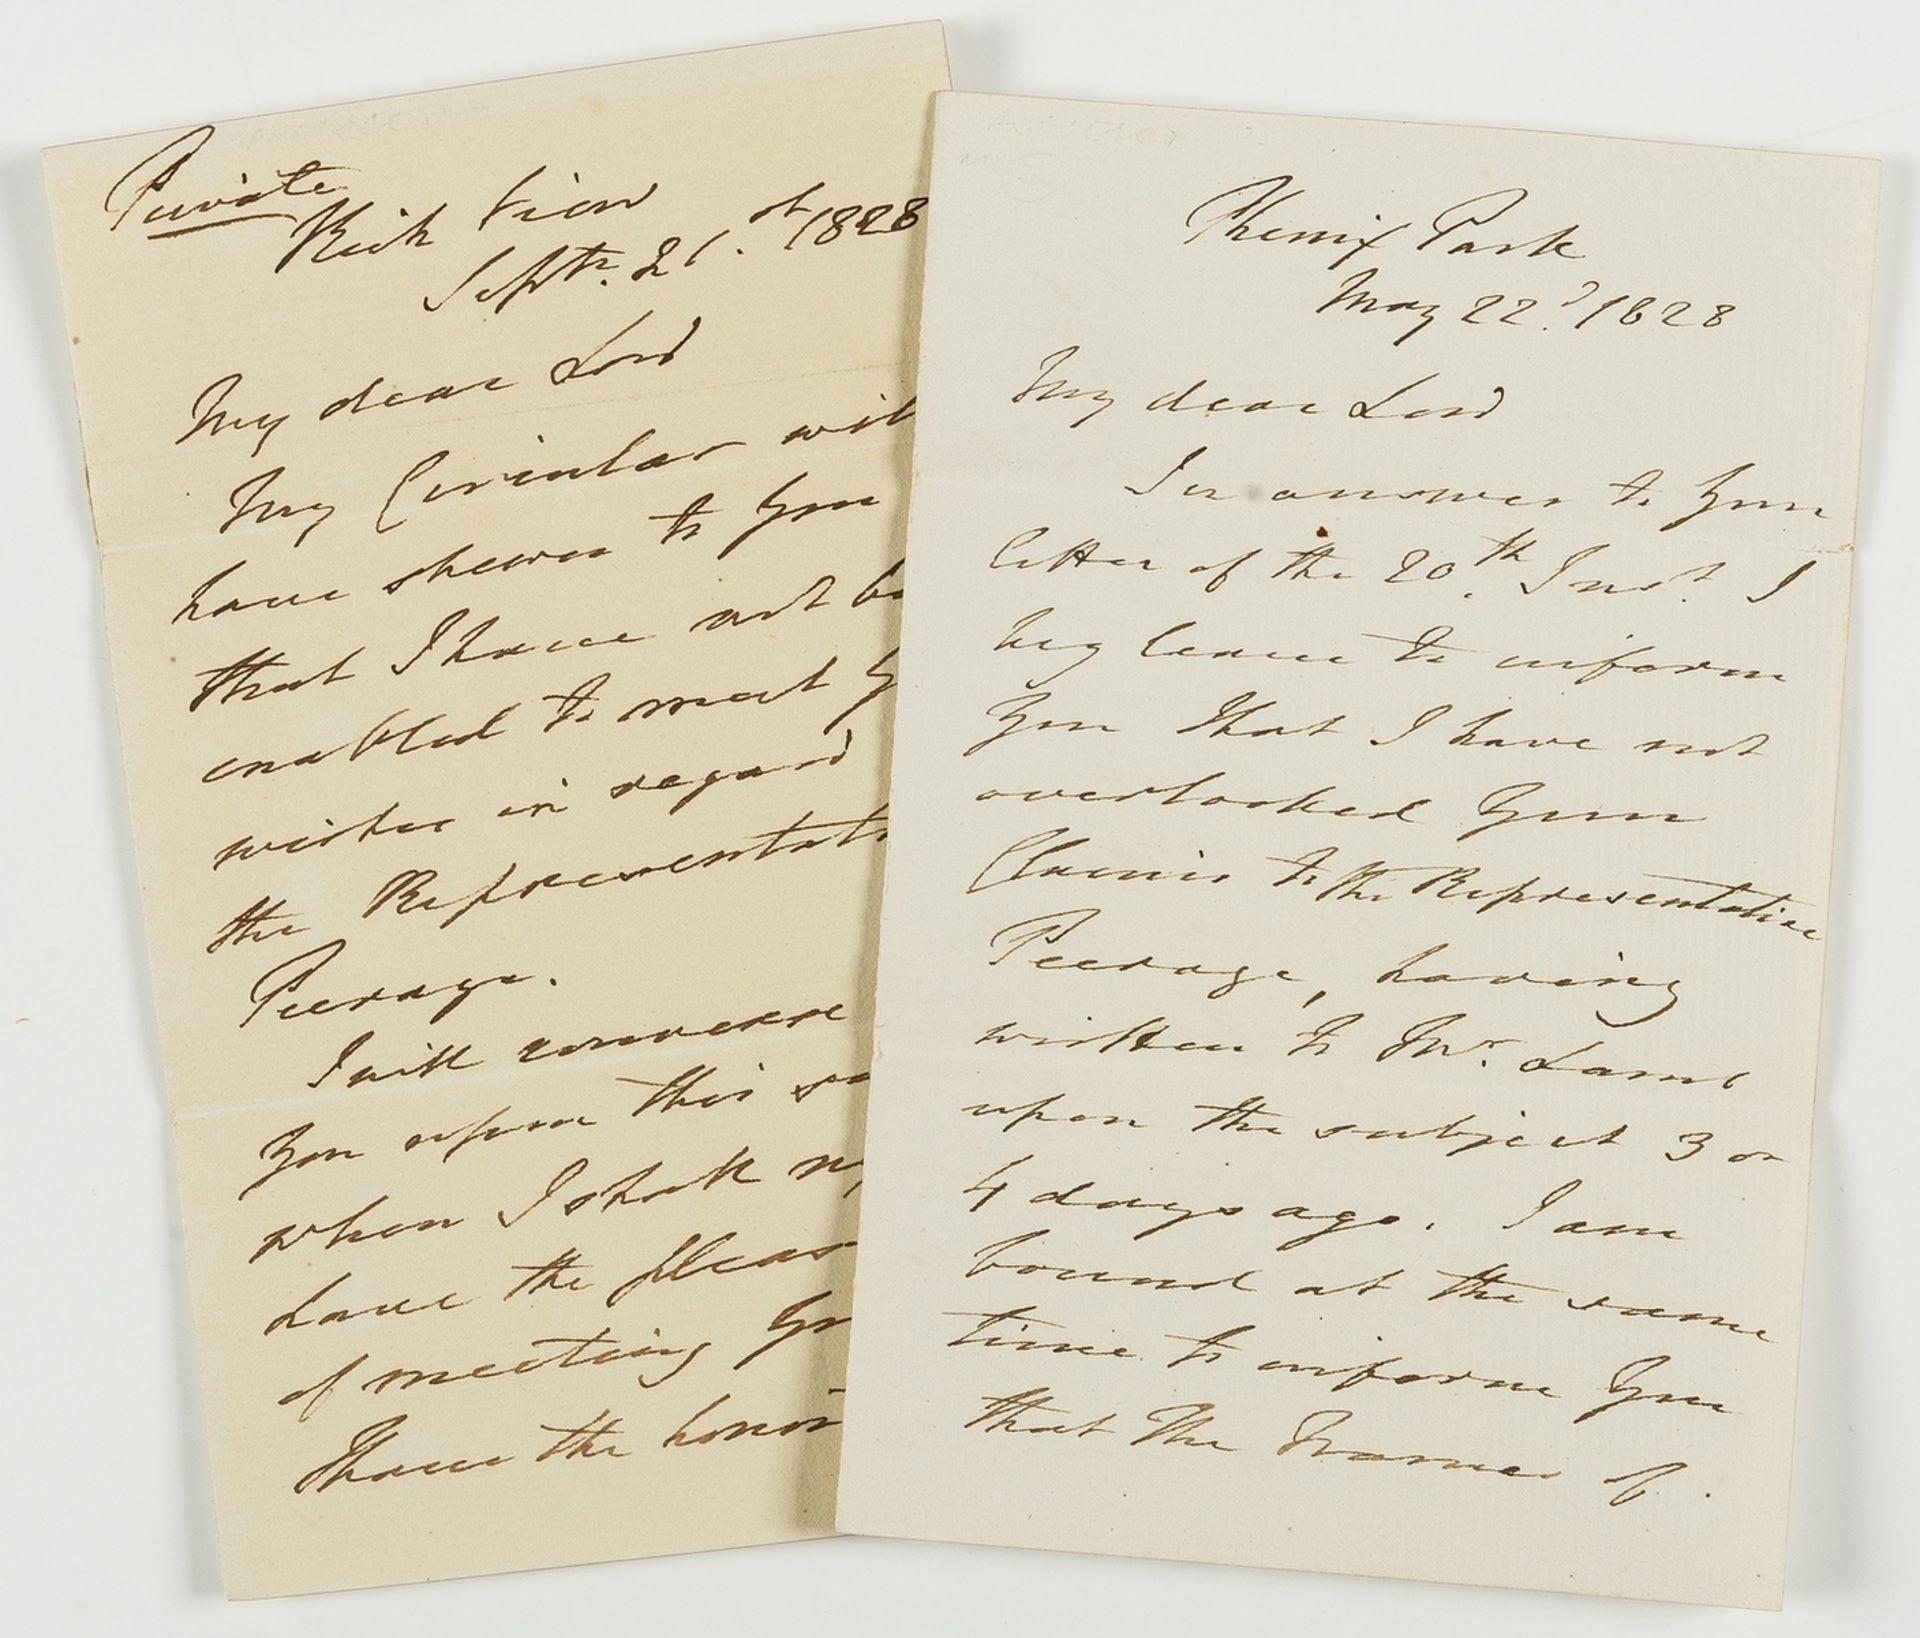 Private
Rich View
Septr. 21.st 1828
My dear Lord
My Circular will
have shewn to You
that I have not be
enabled to meet Y
wishes in regard
the Representati
Peerage.
I will converse
You upon this su
when I shall n
have the pleas
of meeting Yo
I have the honor
Phenix Park
May 22d. 1828
My dear Lord
In answer to Your
letter of the 20.th Inst. I
beg leave to inform
You that I have not
overlooked Your
Claims to the Representative
Peerage, having
written to Mr. Lamb
upon the subject 3 or
4 days ago. I am
bound at the same
time to inform You
that the Names of